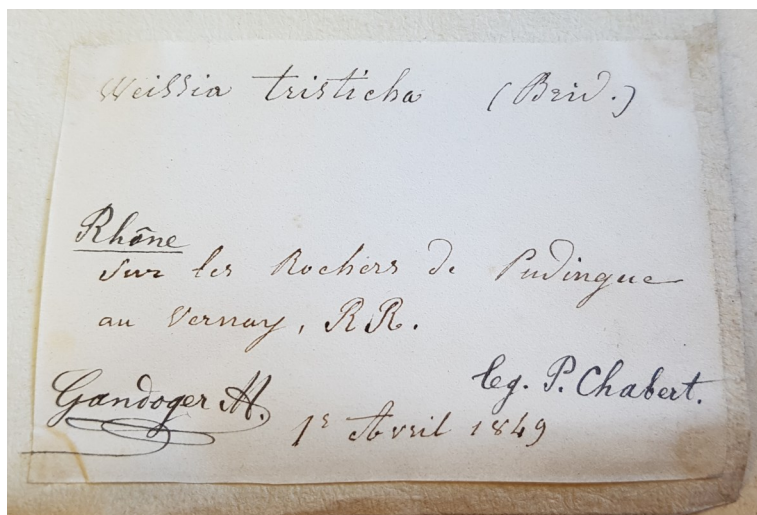 Weissia tristicha (Brid.)
Rhône
sur les Rochers de Pudingue
au Vernay, RR.
leg. P. Chabert.
Gandoger M.
1r Avril 1849